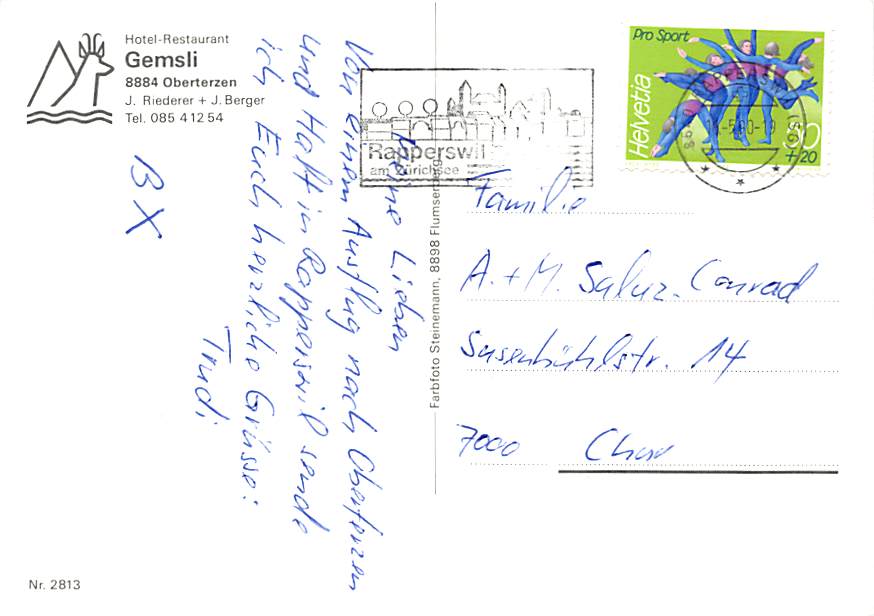 Hotel-Restaurant
Gemsli
8884 Oberterzen
J. Riederer + J. Berger
Tel. 085 4 12 54
Meine Lieben
Von einem Ausflug nach Oberterzen
und Halt in Rapperswil sende
ich Euch herzliche Grüsse:
Trudi
BX
Nr. 2813
Farbfoto Steinemann, 8898 Flumserberg
Rapperswil
am Zürichsee
Pro Sport
Helvetia
+20
Familie
A. + M. Saluz-Conrad
Susenbühlstr. 14
7000 Chur